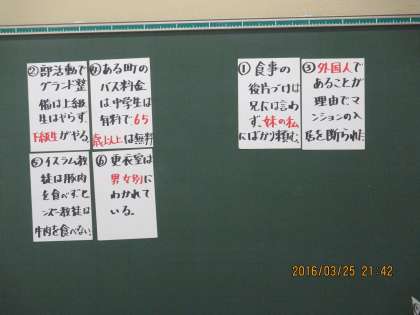 ①食事の
後片づけは
兄には言わ
ず、妹の私
にばかり頼む。
③外国人で
あることが
理由でマ
ンションの入
居を断られた
②部活動で
グランド整
備は上級
生はやらず
下級生がやる。
④ある町の
バス料金
は中学生は
有料で65
歳以上は無料
⑤イスラム教
徒は豚肉
を食べずヒ
ンズー教徒は
牛肉を食べない
⑥更衣室は
男女別に
わかれて
いる。
2016/03/25 21:42